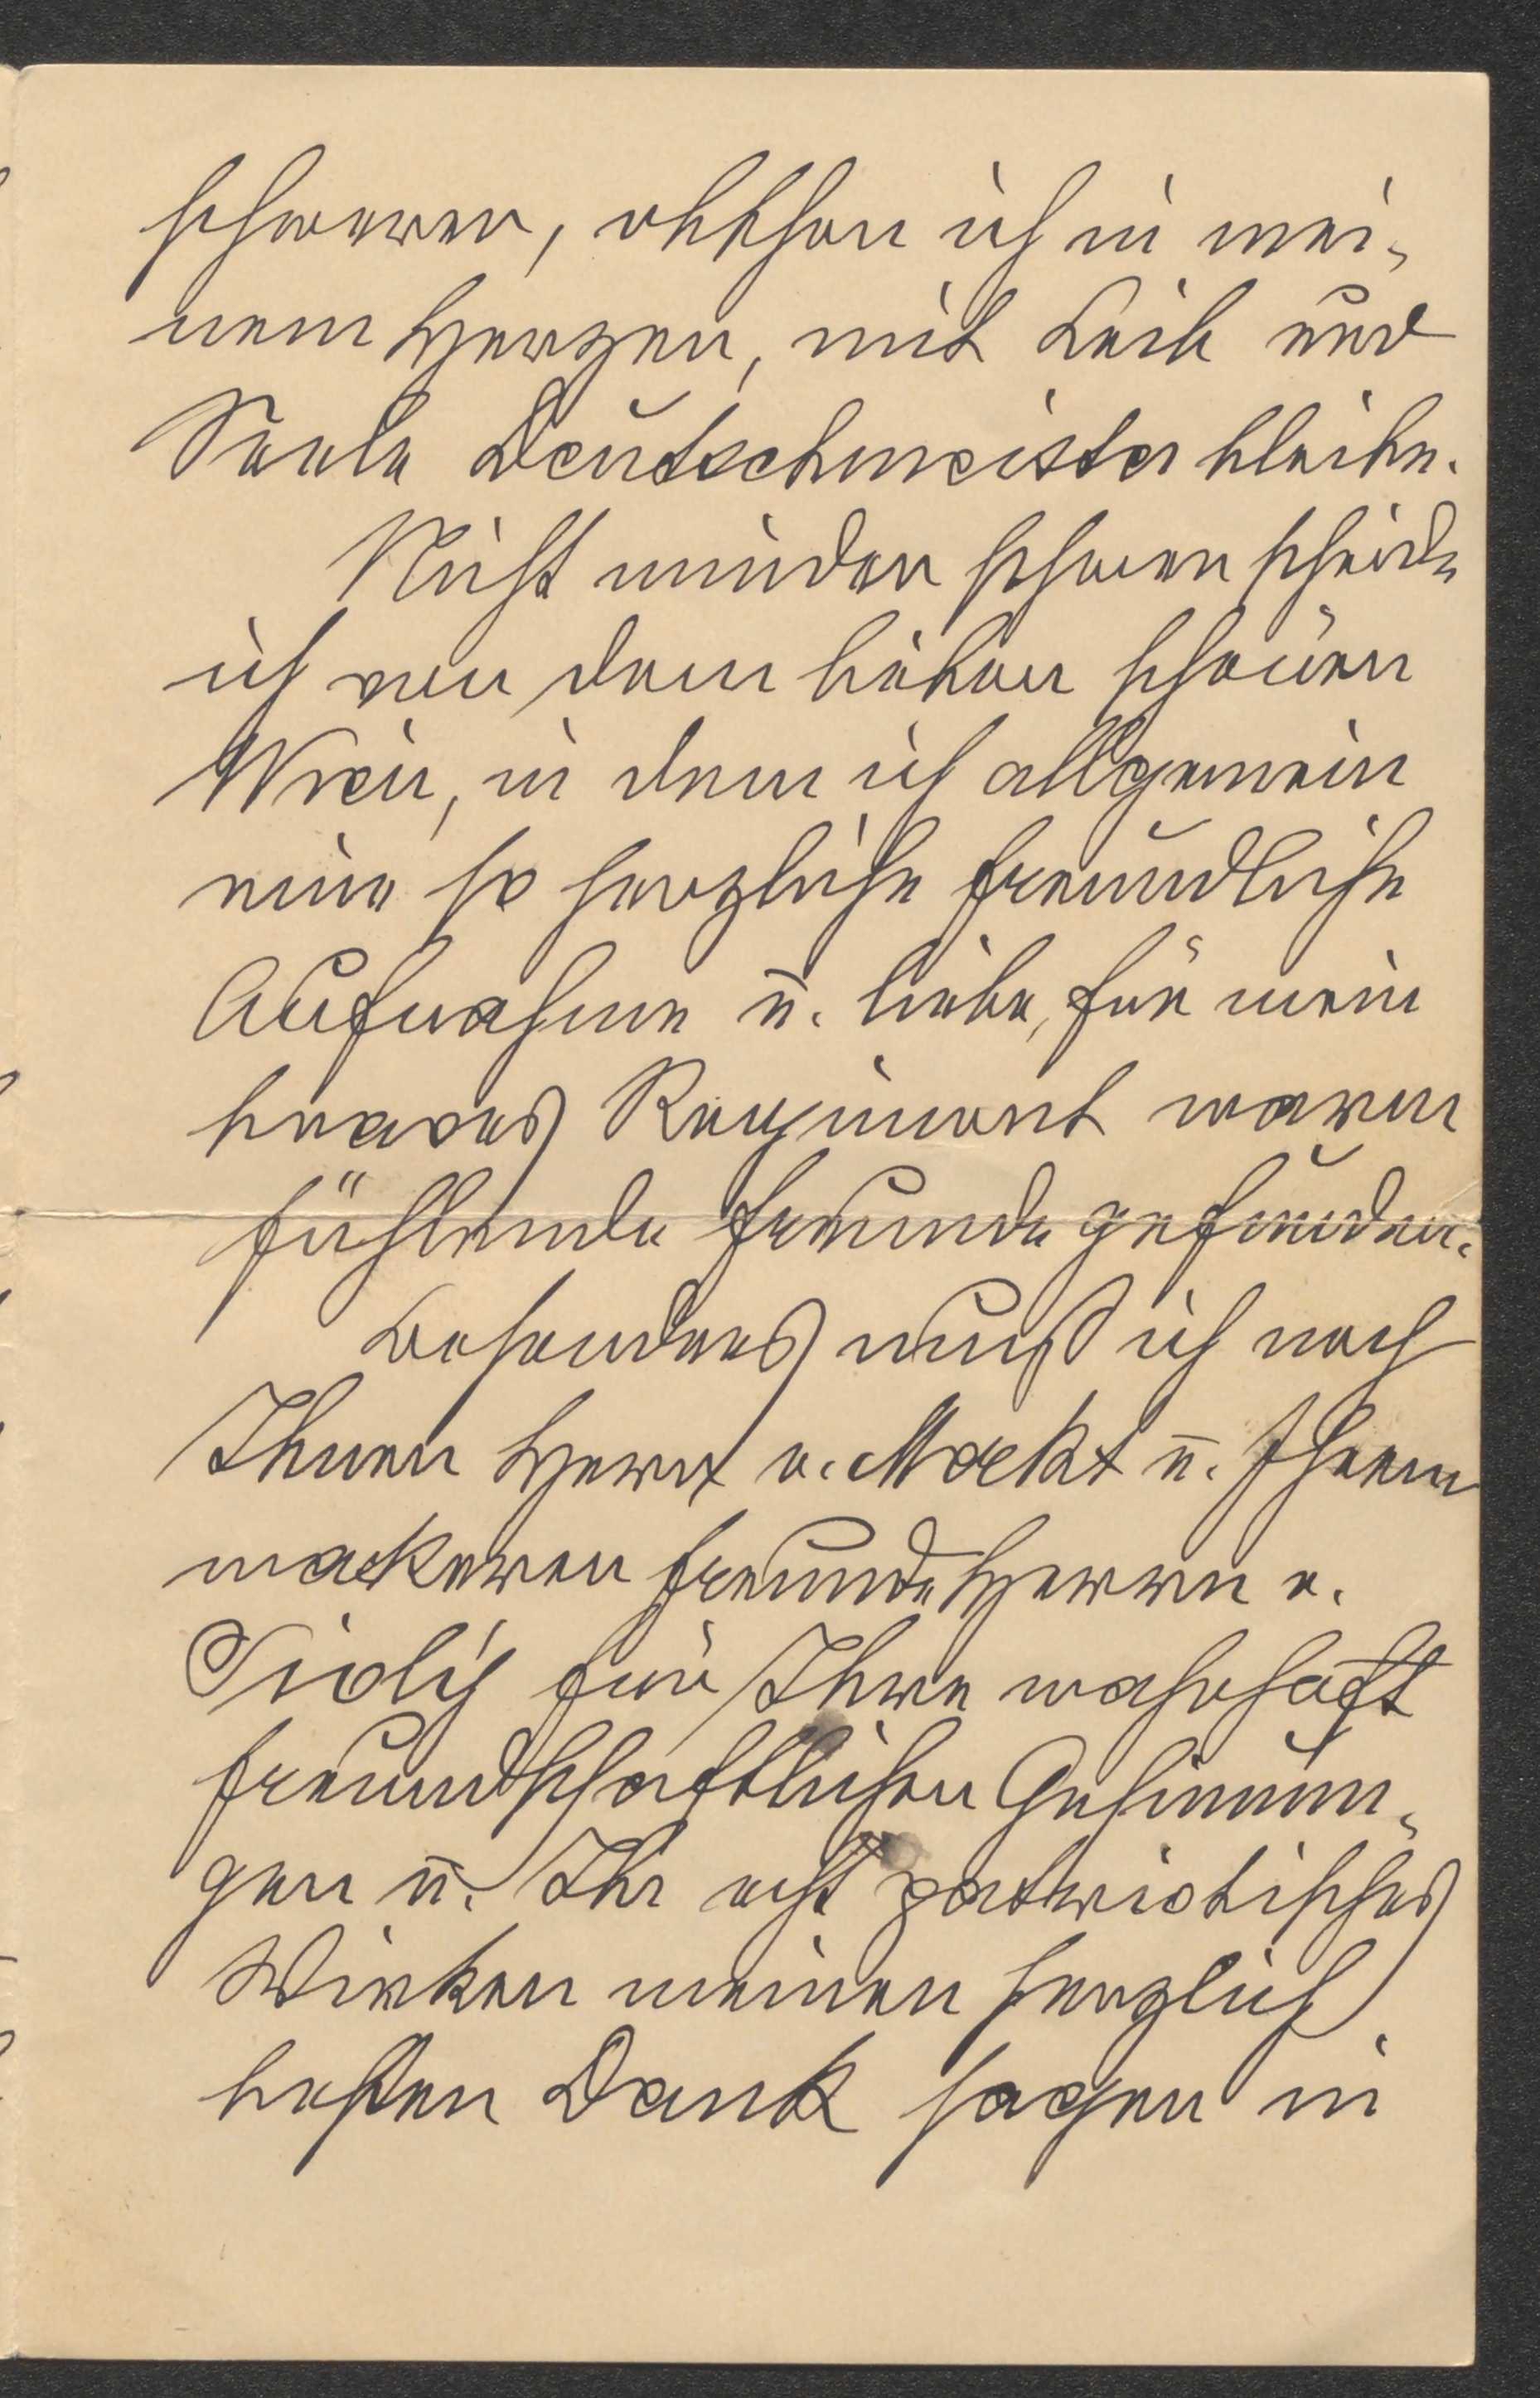 schwerer, obschon ich in mei-
nem Herzen, mit Leib und
Seele Deutschmeister bleibe.
Nicht minder schwer scheide
ich von dem lieben schönen
Wien, in dem ich allgemein
eine so herzliche freundliche
Aufnahme u. liebe, für mein
braves Regiment warm
fühlende Freunde gefunden.
Besonders muß ich noch
Ihnen Herr v. u. Ihrem
wackeren Freunde Herrn v.
für Ihre wahrhaft
freundschaftlichen Gesinnun-
gen u. Ihr echt patriotisches
Wirken meinen herzlich
besten Dank sagen in